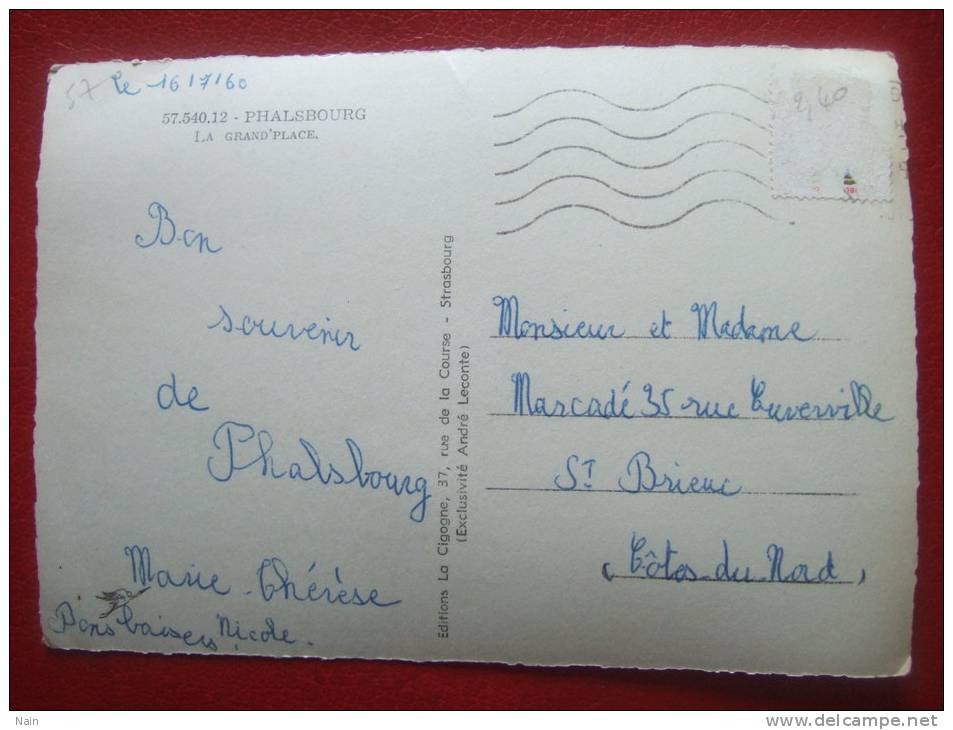 57 Le 16/7/60
57.540.12 - PHALSBOURG
LA GRAND'PLACE.
2,40
Bon
souvenir
de
Phalsbourg
Marie-Thérèse
Bons baisers Nicole.
Editions La Cigogne, 37, rue de la Course - Strasbourg
(Exclusivité André Leconte)
Monsieur et Madame
Marcadé 35 rue Cuverville
St Brieuc
(Côtes-du-Nord)
Nain
www.delcampe.net